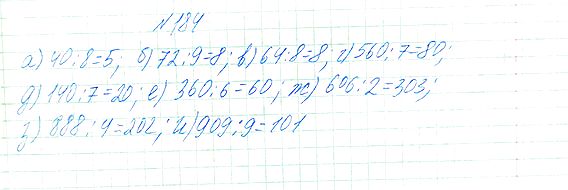 №184
а) 40:8=5; б) 72:9=8; в) 64:8=8; г) 560:7=80;
д) 140:7=20; е) 360:6=60; ж) 606:2=303;
з) 888:4=202; и) 909:9=101